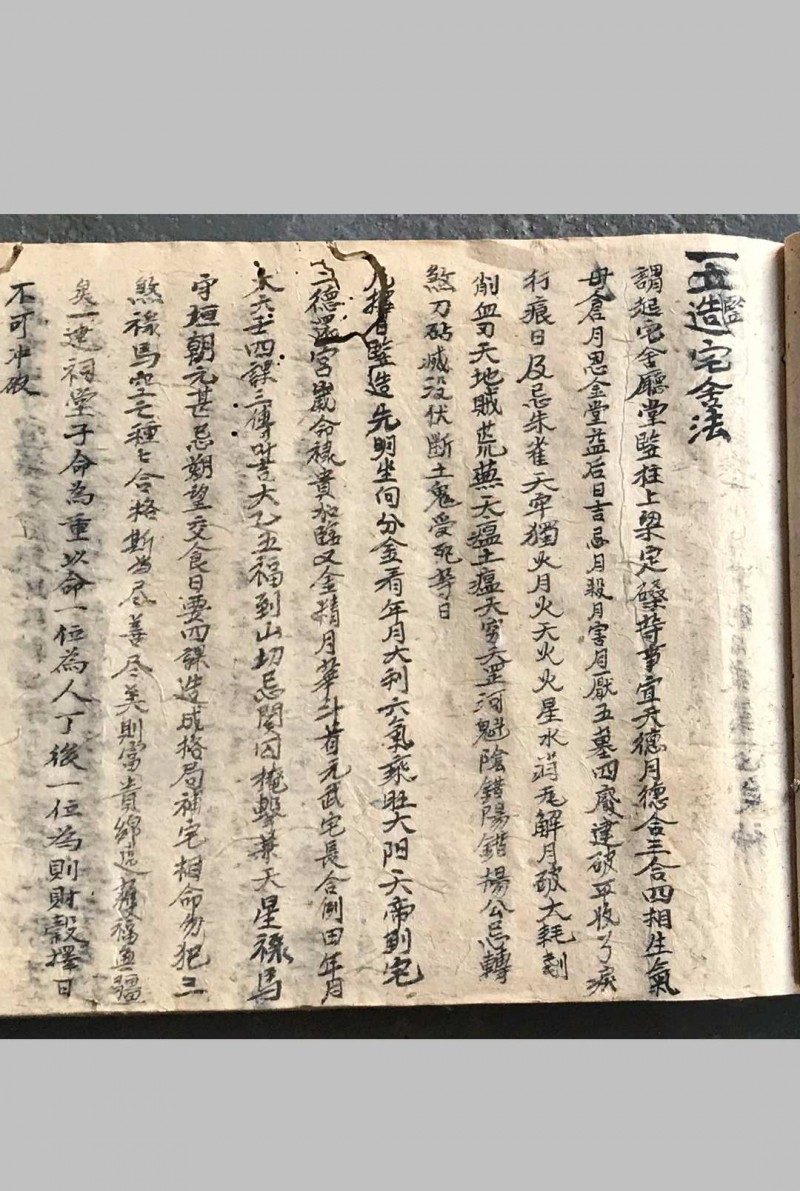 一五監造宅舍法
謂起宅舍廳堂監柱上梁定磉等事宜天德月德合三合四相生氣
母倉月恩金堂益后日吉忌月殺月害月厭五墓四廢建破平收
行痕日及忌朱雀天牢獨火月火天火火星水消瓦解月破大耗
削血刃天地賊荒蕪天瘟土瘟天窮天罡河魁陰錯陽錯楊公忌轉
煞刀砧滅沒伏斷土鬼受死等日
凡擇日監造先明坐向分金看年月大利六氣乘旺大阳天帝到宅
德還宮歲命祿貴加臨又金精月華斗首元武宅長合例田年月
六壬四課三傳大乙五福到山切忌関囚掩擊兼天星祿馬
守垣朝元甚忌朔望交食日要四課造成格局補宅相命勿犯三
煞祿馬空亡種々合格斯為尽善尽美則富貴綿遠福無疆
矣一建祠堂子命為重以命一位為人丁後一位為則財穀擇日
不可冲破